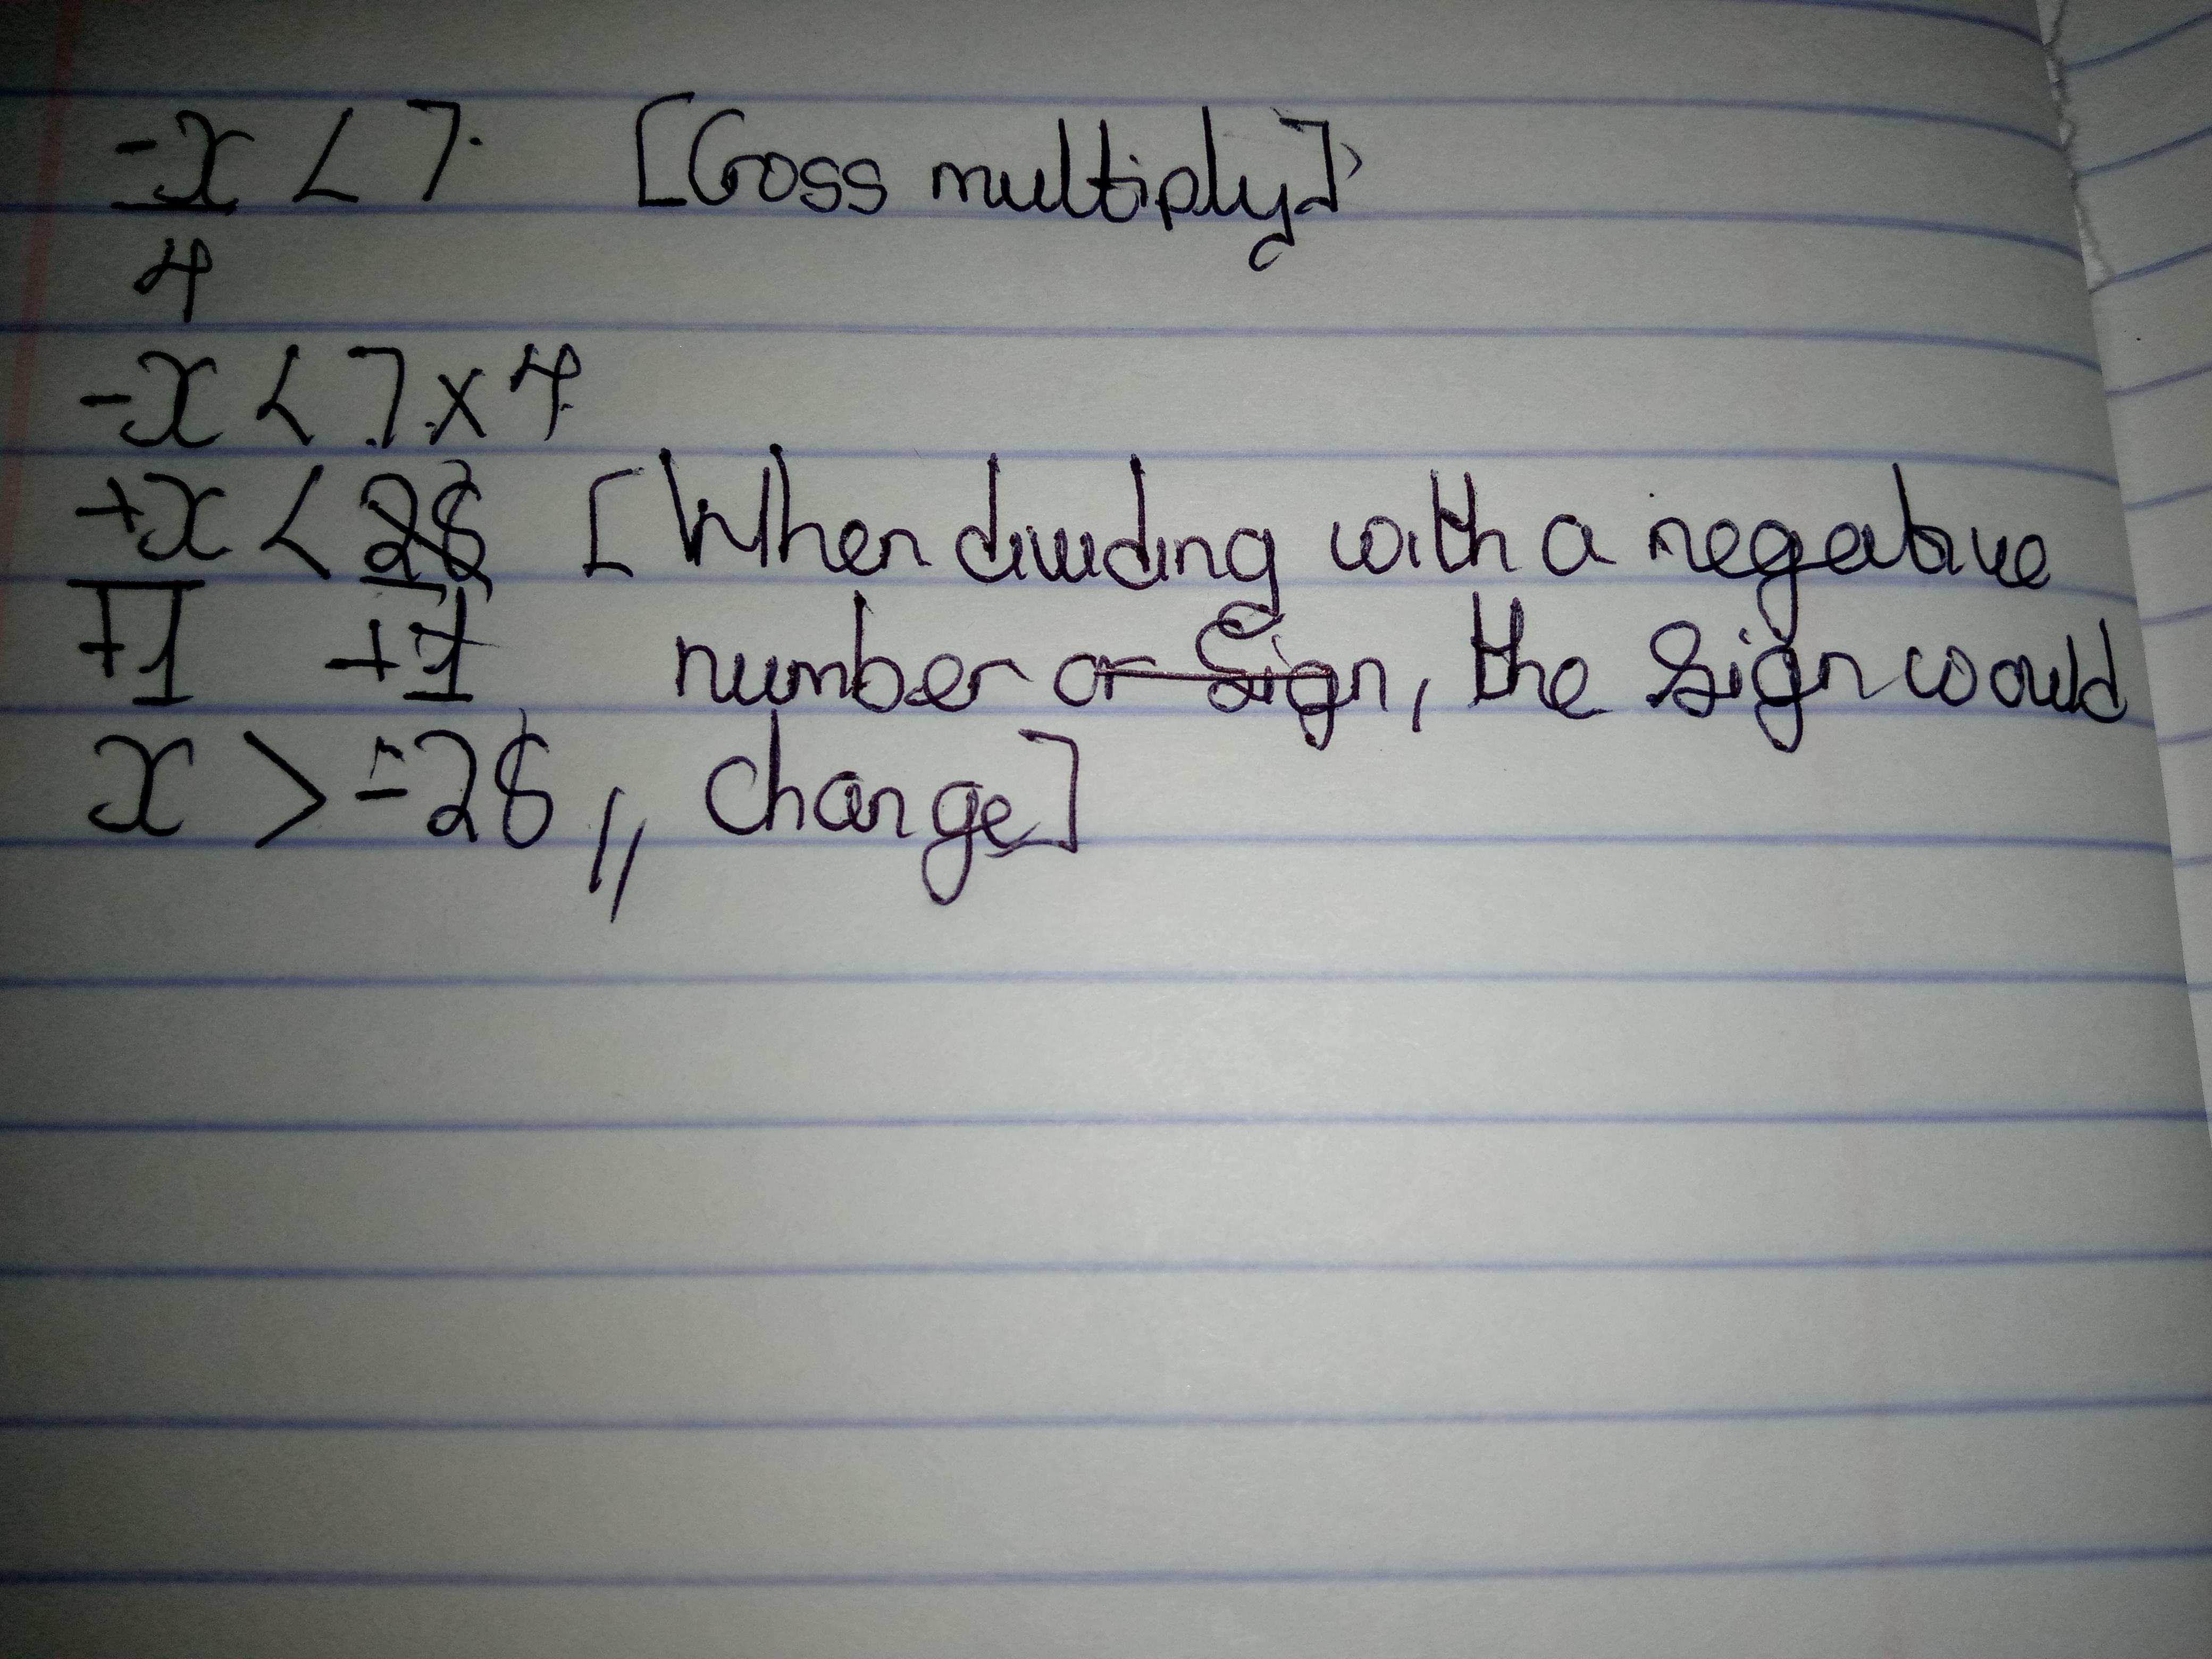 -x < 7 [Cross multiply]
4
-x < 7 x 4
+x < 28 [When dividing with a negative
+1 +1 number or sign, the sign would
x > -28,, change]